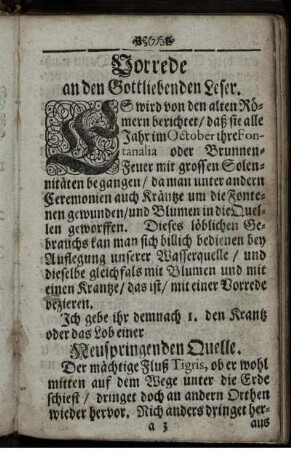 Vorrede
an den Gottliebenden Leser.
ES wird von den alten Rö-
mern berichtet/ daß sie alle
Jahr im October ihre Fon-
tanalia oder Brunnen-
Feuer mit grossen Solen-
nitäten begangen/ da man unter andern
Ceremonien auch Kräntze um die Fonte-
nen gewunden/ und Blumen in die Quel-
len geworffen. Dieses löblichen Ge-
brauchs kan man sich billich bedienen bey
Auflegung unserer Wasserquelle/ und
dieselbe gleichfals mit Blumen und mit
einen Krantze/ das ist/ mit einer Vorrede
bezieren.
Ich gebe ihr demnach 1. den Krantz
oder das Lob einer
Neuspringenden Quelle.
Der mächtige Fluß Tigris, ob er wohl
mitten auf dem Wege unter die Erde
schiest/ dringet doch an andern Orthen
wieder hervor. Nich anders dringet her-
a 3 aus